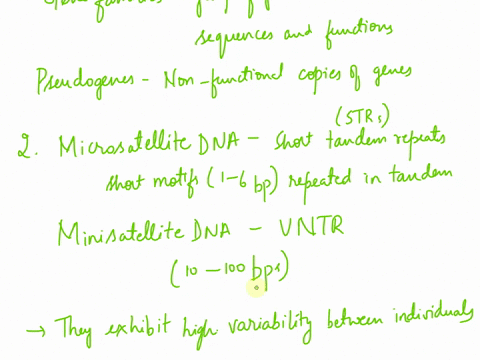 sequences and functions
Pseudogenes - Non-functional copies of genes
(STRs)
2. Microsatellite DNA - Short tandem repeats
short motifs (1-6 bp) repeated in tandem
Minisatellite DNA - VNTR
(10-100 bps)
→ They exhibit high variability between individuals